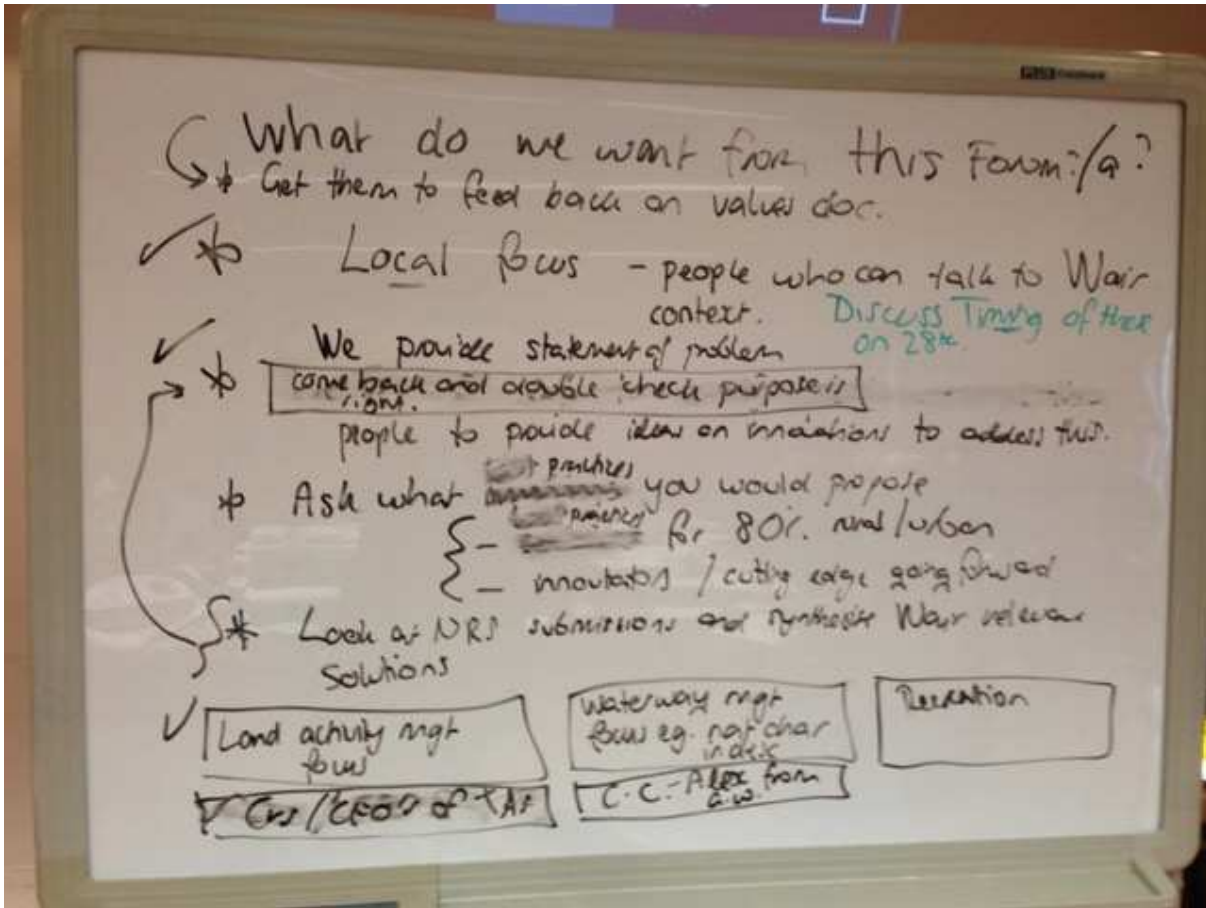 What do we want from this Forum:/a?
* Get them to feed back on values doc.
* Local focus - people who can talk to Wair
context.
Discuss Timing of these
on 28th.
We provide statement of problem
* come back and double check purpose is
right.
people to provide ideas on innovations to address this.
practices
* Ask what you would propose
- for 80%. rural/urban
- innovators / cutting edge going forward
* Look at NRS submissions and synthesise Wair relevant
solutions
Land activity mgt
focus
Waterway mgt
focus eg. nat char
index
Recreation
Crs/CEO's of TAs
C.C. - Alex from
G.W.